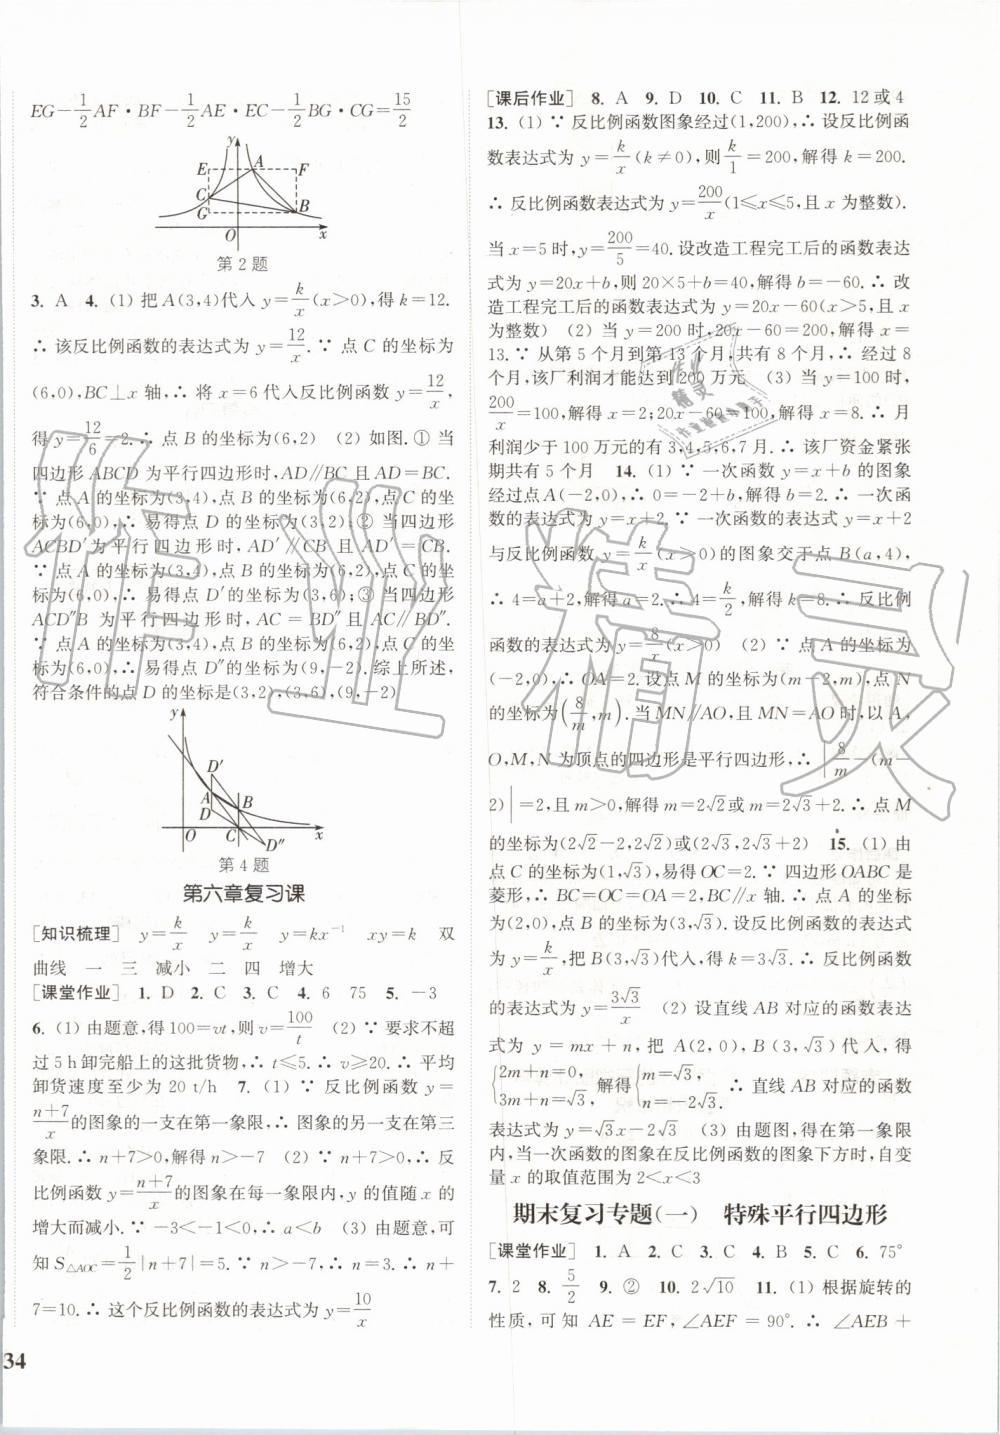 EG－1/2AF·BF－1/2AE·EC－1/2BG·CG＝15/2
y
E A F
C
G B
O x
第 2 题
3. A 4. (1) 把 A(3,4)代入 y＝k/x(x＞0),得 k＝12.
∴ 该反比例函数的表达式为 y＝12/x.∵ 点 C 的坐标为
(6,0),BC⊥x 轴,∴ 将 x＝6 代入反比例函数 y＝12/x,
得 y＝12/6＝2.∴ 点 B 的坐标为(6,2) (2) 如图.① 当
四边形 ABCD 为平行四边形时,AD∥BC 且 AD＝BC.
∵ 点 A 的坐标为(3,4),点 B 的坐标为(6,2),点 C 的坐
标为(6,0),∴ 易得点 D 的坐标为(3,2);② 当四边形
ACBD′为平行四边形时,AD′∥CB 且 AD′＝CB.
∵ 点 A 的坐标为(3,4),点 B 的坐标为(6,2),点 C 的坐
标为(6,0),∴ 易得点 D′的坐标为(3,6);③ 当四边形
ACD″B 为平行四边形时,AC＝BD″且 AC＝BD″.
∵ 点 A 的坐标为(3,4),点 B 的坐标为(6,2),点 C 的坐
标为(6,0),∴ 易得点 D″的坐标为(9,－2).综上所述,
符合条件的点 D 的坐标是(3,2),(3,6),(9,－2)
y
D′
A B
D
O C x
D″
第 4 题
第六章复习课
[知识梳理] y＝k/x y＝k/x y＝kx⁻¹ xy＝k 双
曲线 一 三 减小 二 四 增大
[课堂作业] 1. D 2. C 3. C 4. 6 75 5. －3
6. (1) 由题意,得 100＝vt,则 v＝100/t (2) ∵ 要求不超
过 5 h 卸完船上的这批货物,∴ t≤5.∴ v≥20.∴ 平均
卸货速度至少为 20 t/h 7. (1) ∵ 反比例函数 y＝
(n＋7)/x的图象的一支在第一象限,∴ 图象的另一支在第三
象限.∴ n＋7＞0,解得 n＞－7 (2) ∵ n＋7＞0,∴ 反
比例函数 y＝(n＋7)/x的图象在每一象限内,y 的值随 x 的
增大而减小.∵ －3＜－1＜0,∴ a＜b (3) 由题意,可
知 S△AOC＝1/2|n＋7|＝5.∵ n＞－7,∴ n＝3.∴ n＋
7＝10.∴ 这个反比例函数的表达式为 y＝10/x
34
[课后作业] 8. A 9. D 10. C 11. B 12. 12或 4
13. (1) ∵ 反比例函数图象经过(1,200),∴ 设反比例函
数表达式为 y＝k/x(k≠0),则k/1＝200,解得 k＝200.
∴ 反比例函数表达式为 y＝200/x(1≤x≤5,且 x 为整数).
当 x＝5 时,y＝200/5＝40.设改造工程完工后的函数表达
式为 y＝20x＋b,则 20×5＋b＝40,解得 b＝－60.∴ 改
造工程完工后的函数表达式为 y＝20x－60(x＞5,且 x
为整数) (2) 当 y＝200 时,20x－60＝200,解得 x＝
13.∵ 从第 5 个月到第 13 个月,共有 8 个月,∴ 经过 8
个月,该厂利润才能达到 200 万元 (3) 当 y＝100 时,
200/x＝100,解得 x＝2;20x－60＝100,解得 x＝8.∴ 月
利润少于 100 万元的有 3,4,5,6,7 月.∴ 该厂资金紧张
期共有 5 个月 14. (1) ∵ 一次函数 y＝x＋b 的图象
经过点 A(－2,0),∴ 0＝－2＋b,解得 b＝2.∴ 一次函
数的表达式为 y＝x＋2.∵ 一次函数的表达式 y＝x＋2
与反比例函数 y＝k/x(x＞0)的图象交于点 B(a,4),
∴ 4＝a＋2,解得 a＝2.∴ 4＝k/2,解得 k＝8.∴ 反比例
函数的表达式为 y＝8/x(x＞0) (2) ∵ 点 A 的坐标为
(－2,0),∴ OA＝2.设点 M 的坐标为(m－2,m),点 N
的坐标为(8/m,m).当 MN∥AO,且 MN＝AO 时,以 A,
O,M,N 为顶点的四边形是平行四边形,∴ |8/m－(m－
2)|＝2,且 m＞0,解得 m＝2√2或 m＝2√3＋2.∴ 点 M
的坐标为(2√2－2,2√2)或(2√3,2√3＋2) 15. (1) 由
点 C 的坐标为(1,√3),易得 OC＝2.∵ 四边形 OABC 是
菱形,∴ BC＝OC＝OA＝2,BC∥x 轴.∴ 点 A 的坐标
为(2,0),点 B 的坐标为(3,√3).设反比例函数的表达式
为 y＝k/x,把点 B(3,√3)代入,得 k＝3√3.∴ 反比例函数
的表达式为 y＝3√3/x (2) 设直线 AB 对应的函数表达
式为 y＝mx＋n,把 A(2,0),B(3,√3)代入,得
{2m＋n＝0, 3m＋n＝√3, 解得{m＝√3, n＝－2√3. ∴ 直线 AB 对应的函数
表达式为 y＝√3x－2√3 (3) 由题图,得在第一象限
内,当一次函数的图象在反比例函数的图象下方时,自变
量 x 的取值范围为 2＜x＜3
期末复习专题(一) 特殊平行四边形
[课堂作业] 1. A 2. C 3. C 4. B 5. C 6. 75°
7. 2 8. 5/2 9. ② 10. 2√10 11. (1) 根据旋转的
性质,可知 AE＝EF,∠AEF＝90°.∴ ∠AEB＋
作业精灵
作业
精灵